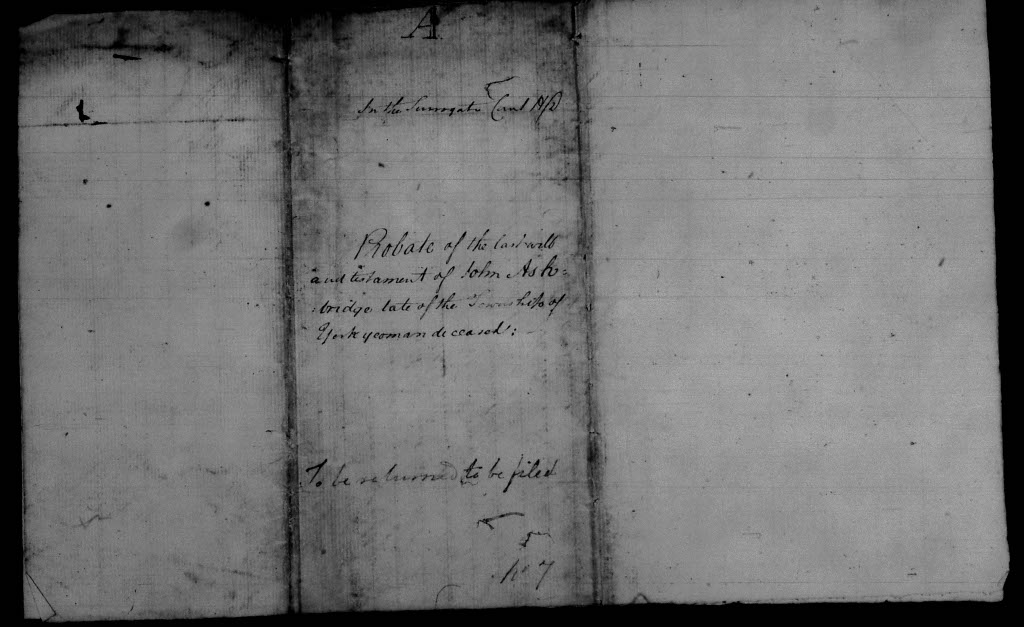 A
In the Surrogate Court HD
Probate of the last will
and testament of John Ash=
=bridge late of the Township of
York yeoman deceased:
To be returned to be filed
No 7